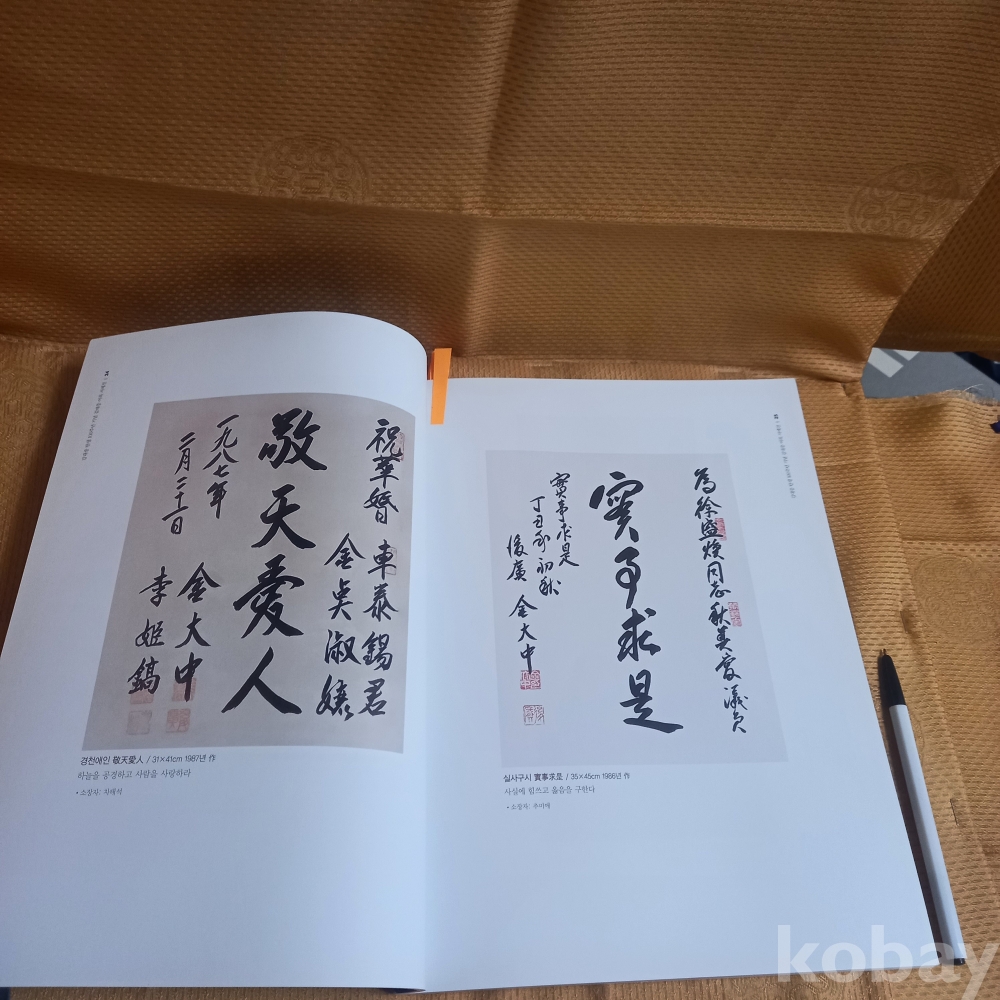 祝華婚
車泰錫君
金奠淑孃
敬天愛人
一九八七年
二月二十一日
金大中
李姬鎬
경천애인 敬天愛人 / 31×41cm 1987년 作
하늘을 공경하고 사람을 사랑하라
• 소장자: 차태석
為徐盛煥同志秋美愛議員
實事求是
實事求是
丁丑年初秋
後廣 金大中
실사구시 實事求是 / 35×45cm 1986년 作
사실에 힘쓰고 옳음을 구한다
• 소장자: 추미애
kobay